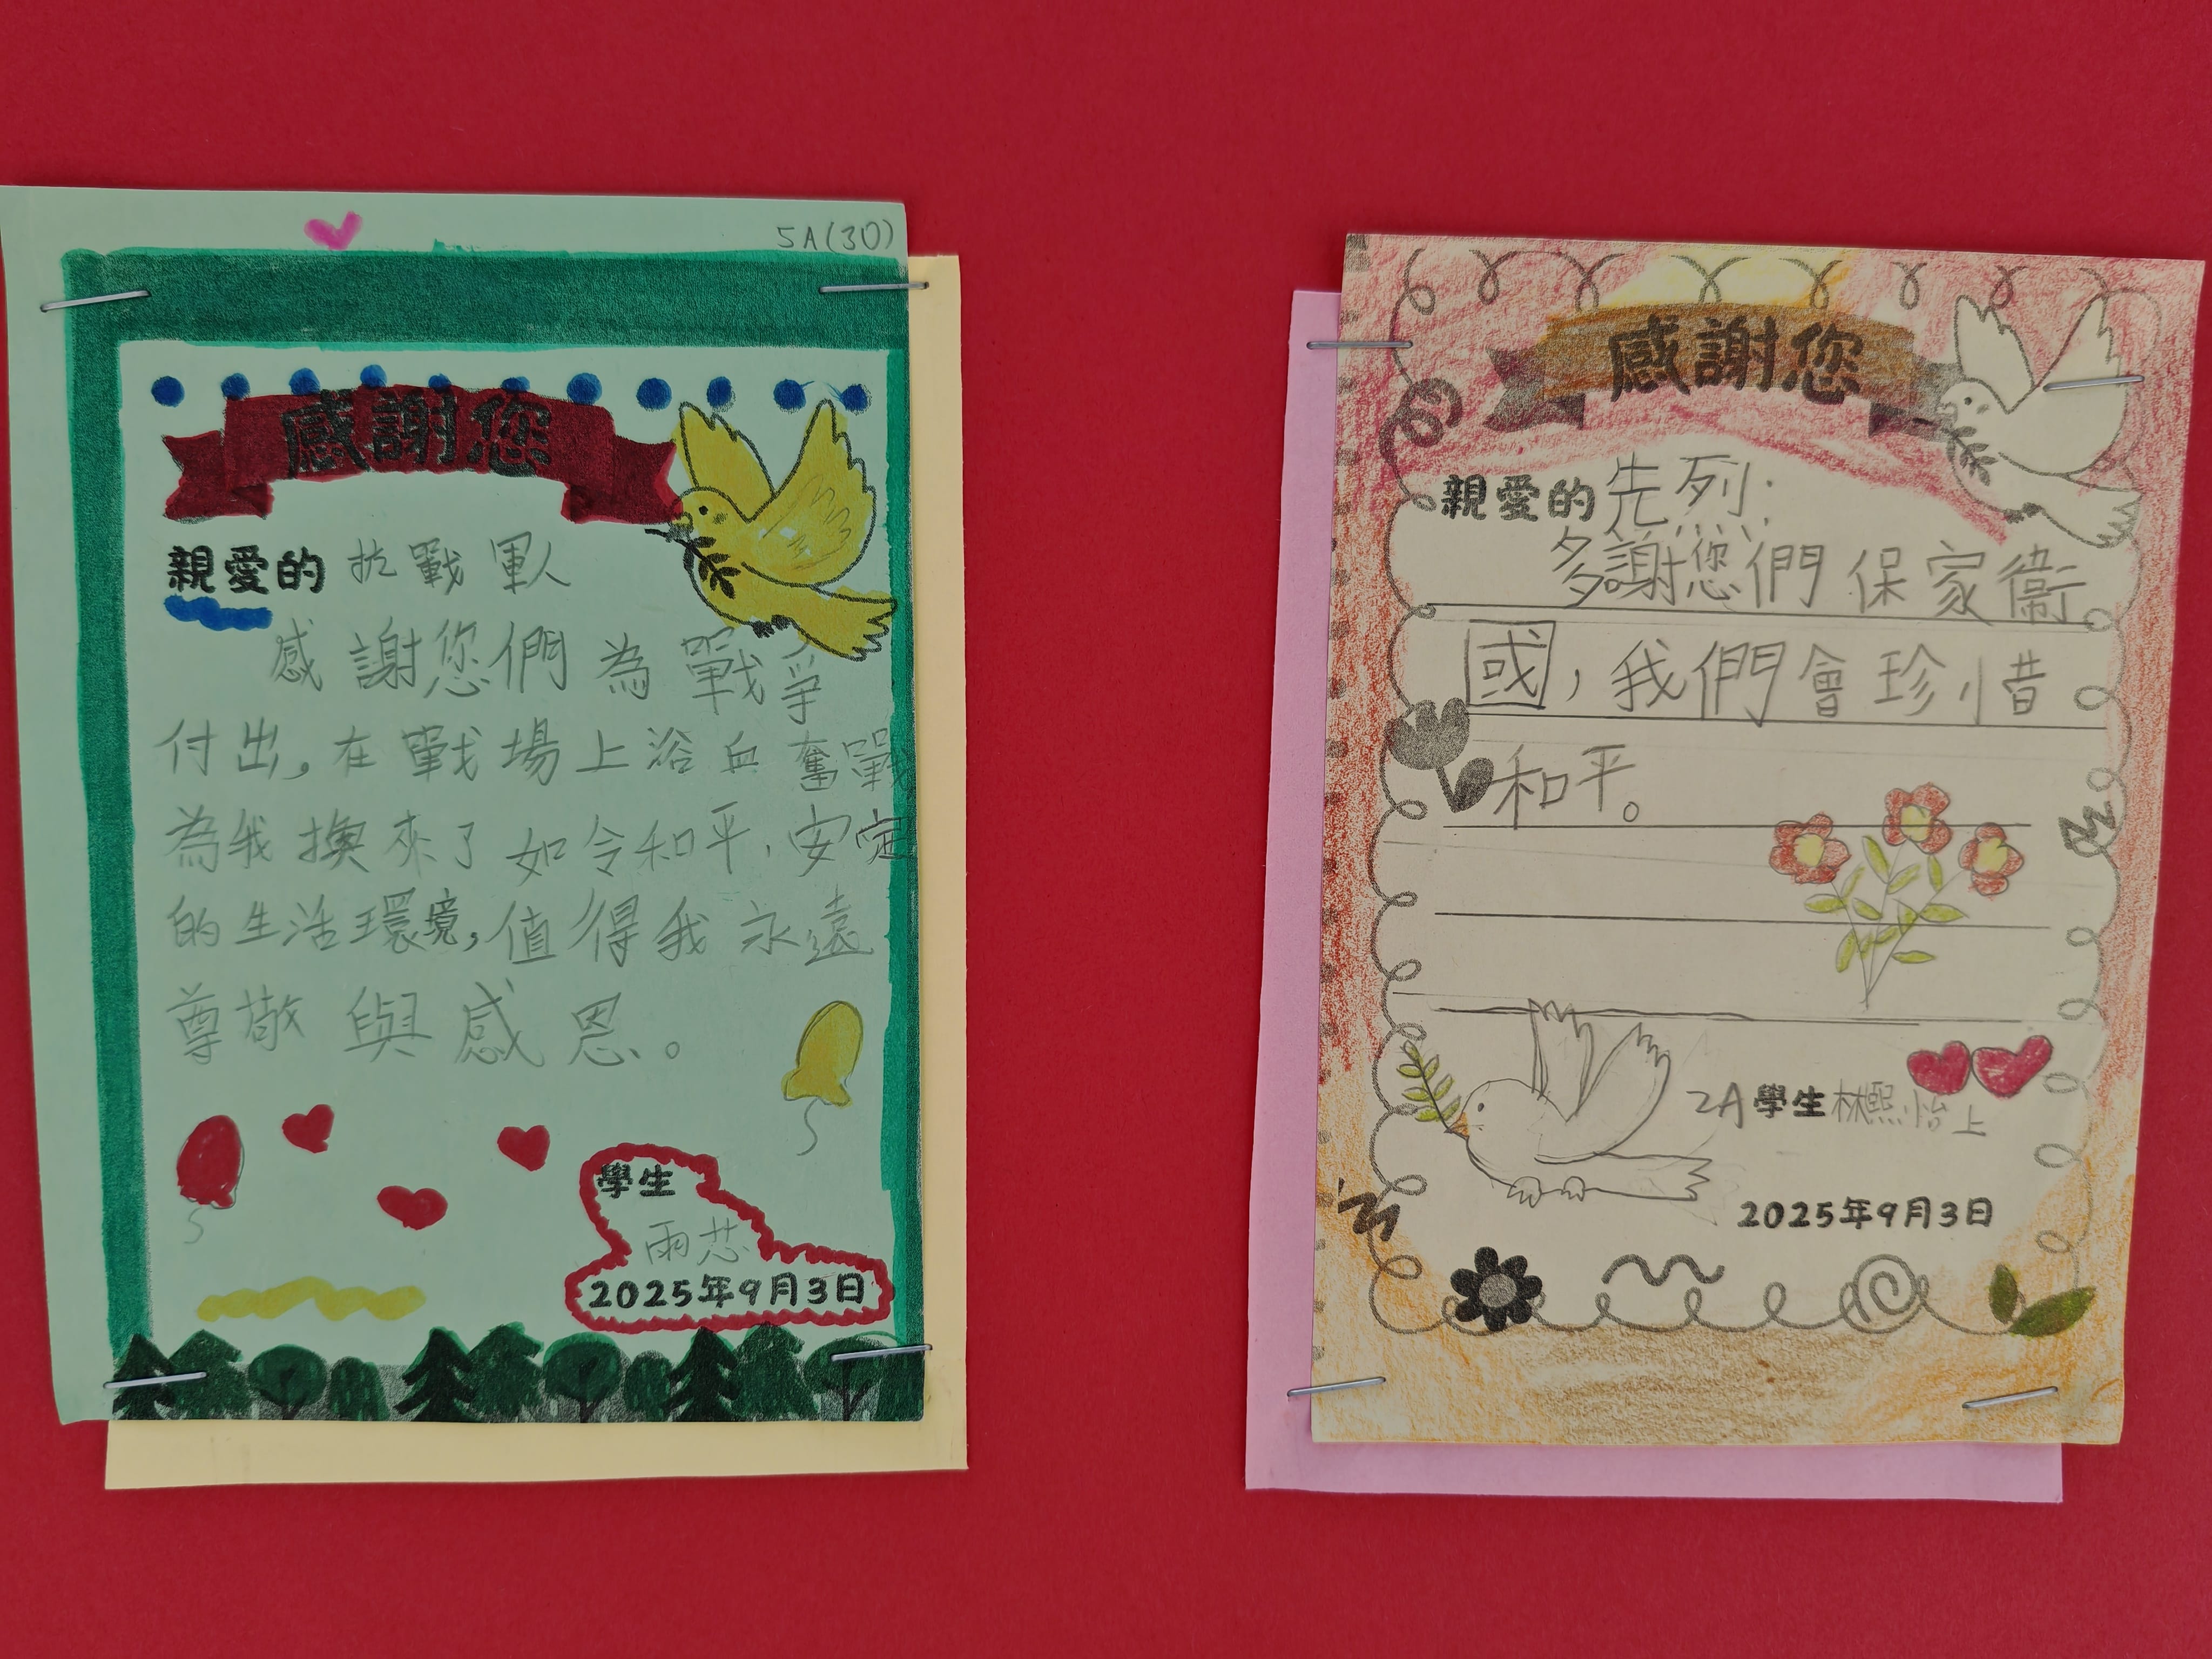 5A(30)
感謝您
親愛的 抗戰軍人
感謝您們為戰爭
付出，在戰場上浴血奮戰
為我換來了如今和平、安定
的生活環境，值得我永遠
尊敬與感恩。
學生
雨芯
2025年9月3日
感謝您
親愛的先烈：
多謝您們保家衞
國，我們會珍惜
和平。
2A學生林熙怡上
2025年9月3日